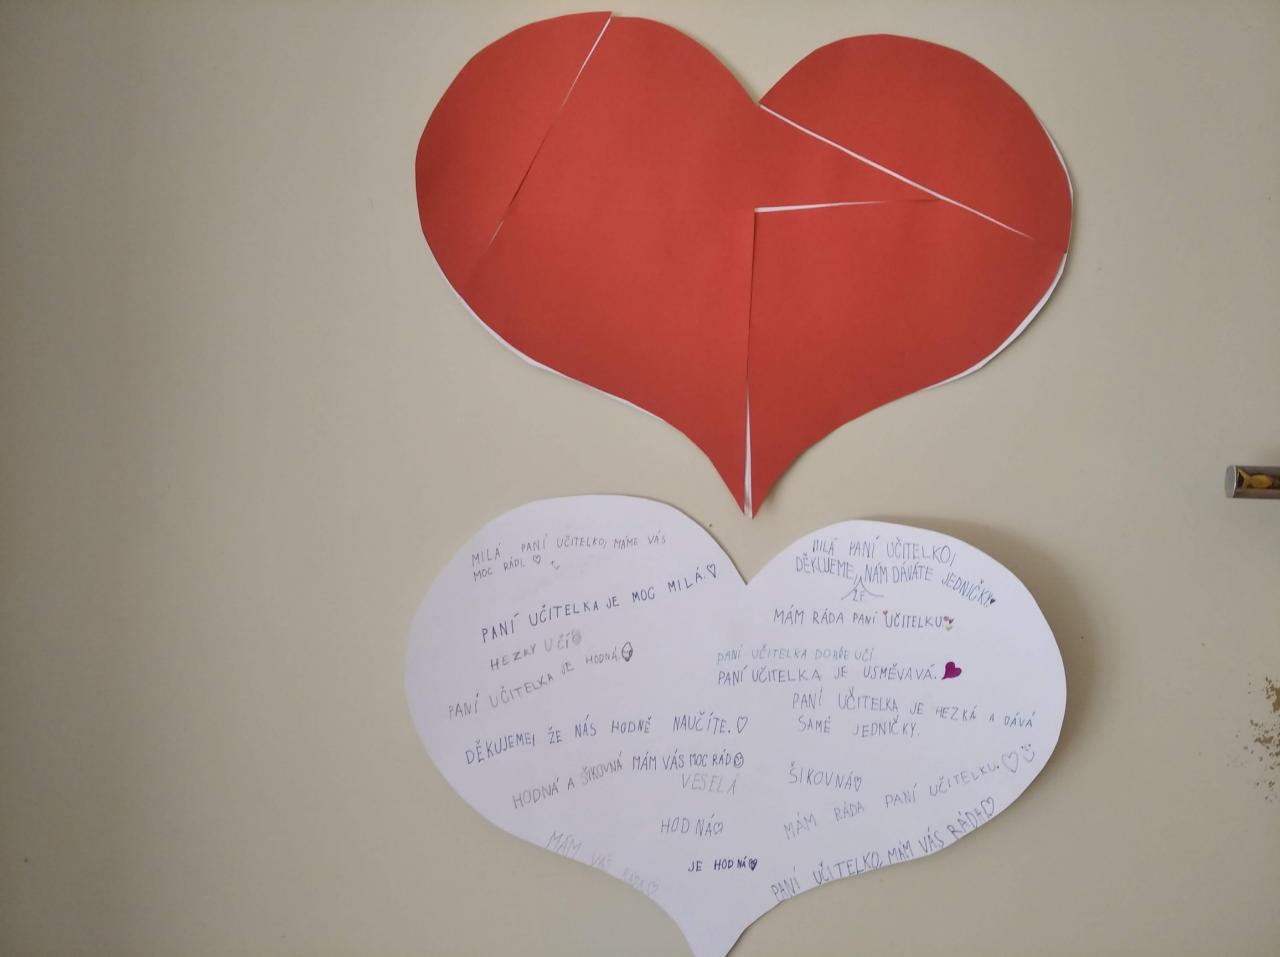 MILÁ PANÍ UČITELKO, MÁME VÁS
MOC RÁDI. ♡
PANÍ UČITELKA JE MOC MILÁ.♡
HEZKY UČÍ
PANÍ UČITELKA JE HODNÁ.
DĚKUJEME, ŽE NÁS HODNĚ NAUČÍTE.♡
HODNÁ A ŠIKOVNÁ MÁM VÁS MOC RÁD
VESELÁ
HODNÁ♡
MÁM VÁS
RÁDA♡
JE HODNÁ♡
MILÁ PANÍ UČITELKO,
DĚKUJEME, NÁM DÁVÁTE JEDNIČKY.
ŽE
MÁM RÁDA PANÍ UČITELKU
PANÍ UČITELKA DOBŘE UČÍ
PANÍ UČITELKA JE USMĚVAVÁ.
PANÍ UČITELKA JE HEZKÁ A DÁVÁ
SAMÉ JEDNIČKY.
ŠIKOVNÁ♡
MÁM RÁDA PANÍ UČITELKU.♡
PANÍ UČITELKO, MÁM VÁS RÁDA♡